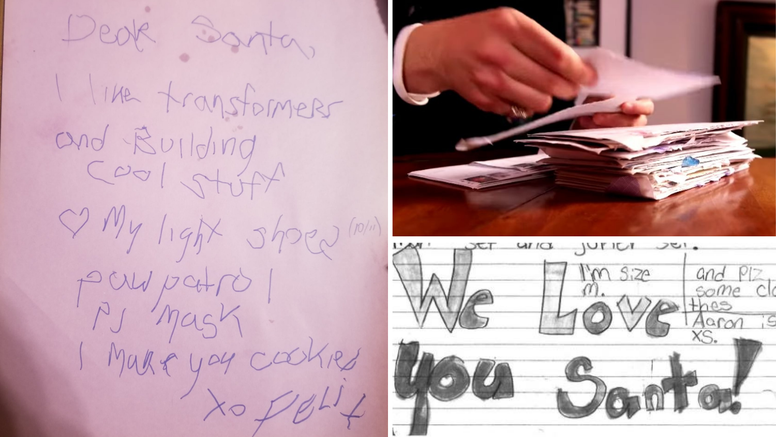 Dear Santa,
I like transformers
and Building
cool stuff
♡ My light shoes (10/11)
paw patrol
PJ Mask
I Make you cookies
xo FELiX
set and junior set.
We Love
I'm size
m.
and Plz
some clo
thes
Aaron is
XS.
you Santa!